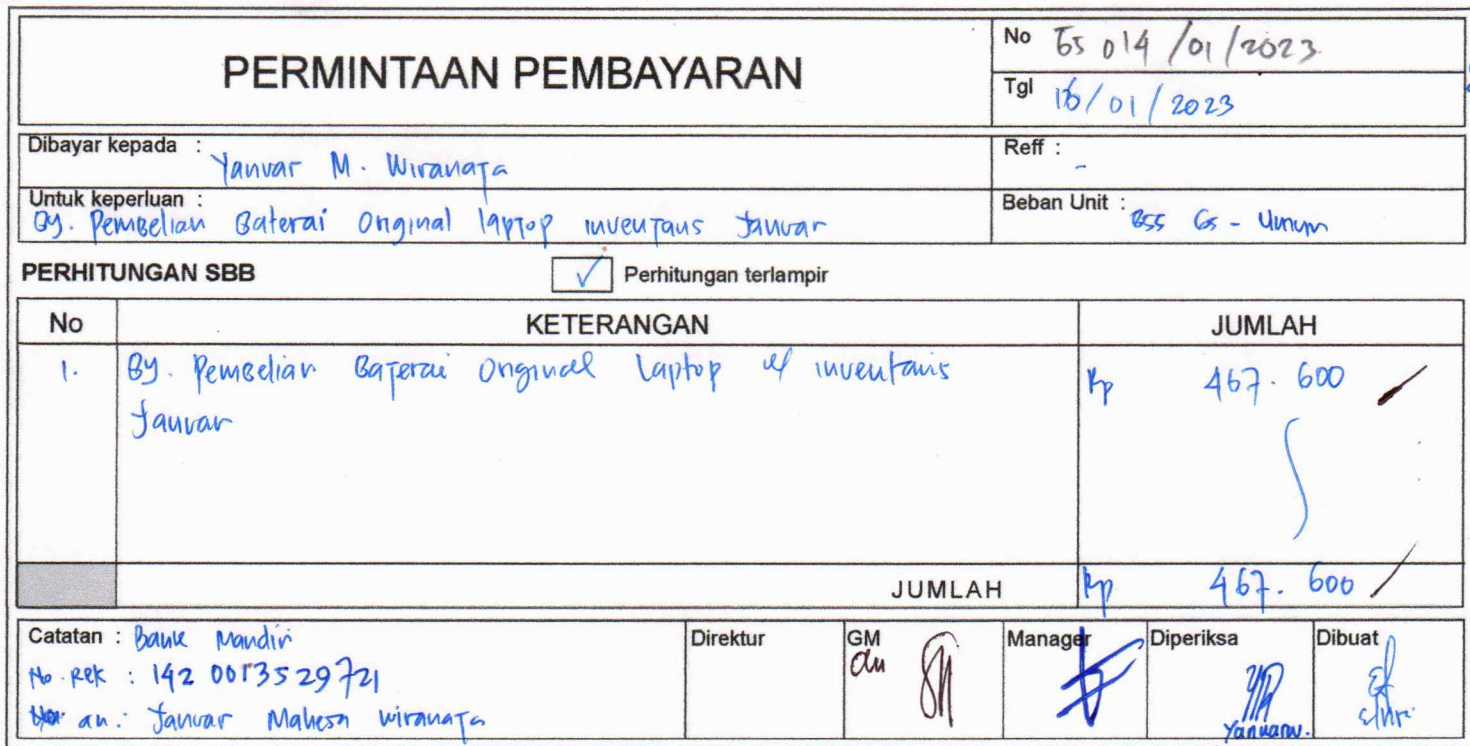 PERMINTAAN PEMBAYARAN
No GS 014 /01/2023
Tgl 16/01/2023
Dibayar kepada : Yanuar M. Wiranata
Reff : -
Untuk keperluan :
By. Pembelian Baterai Original laptop inventaris Januar
Beban Unit : BSS GS - Umum
PERHITUNGAN SBB
✓ Perhitungan terlampir
No KETERANGAN JUMLAH
1. By. Pembelian Baterai Original Laptop inventaris Rp 467.600
Januar
JUMLAH Rp 467.600
Catatan : Bank Mandiri
No. Rek : 142 0013529721
an. : Januar Mahesa Wiranata
Direktur GM Manager Diperiksa Dibuat
an
Yanuarw.